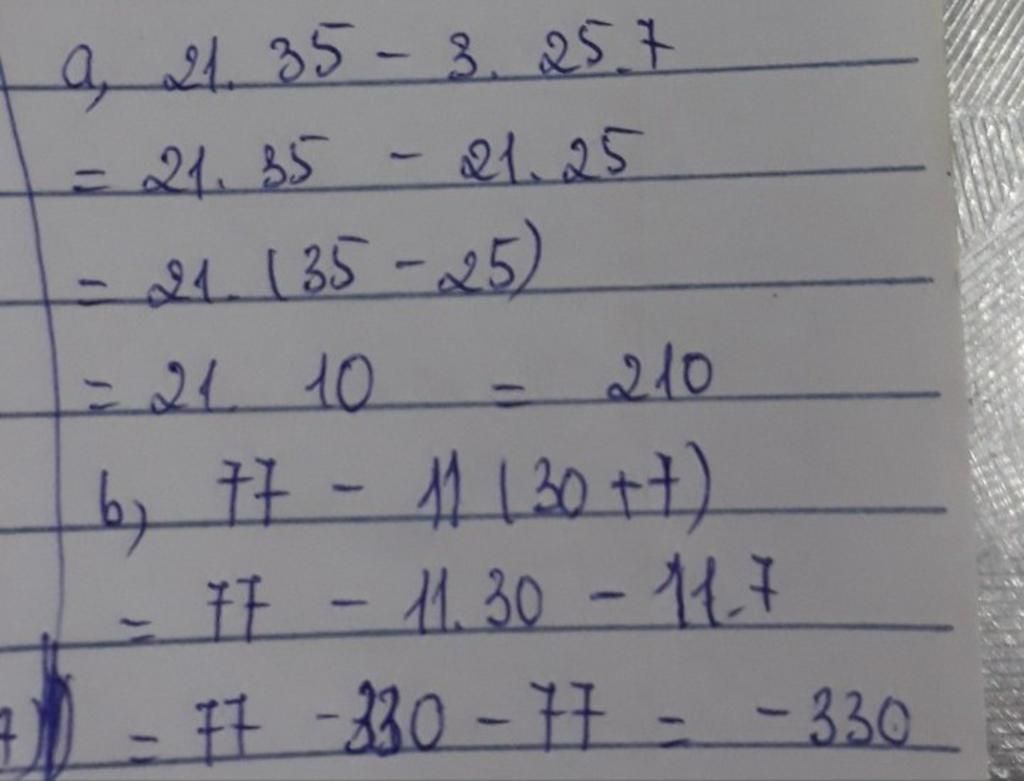 a, 21. 35 - 3. 25.7
= 21. 35 - 21. 25
= 21. (35 - 25)
= 21. 10 = 210
b, 77 - 11 (30 + 7)
= 77 - 11.30 - 11.7
= 77 - 330 - 77 = - 330